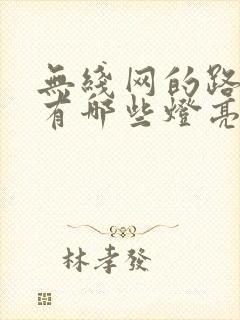 無綫网的路
有哪些燈亮
林孝發